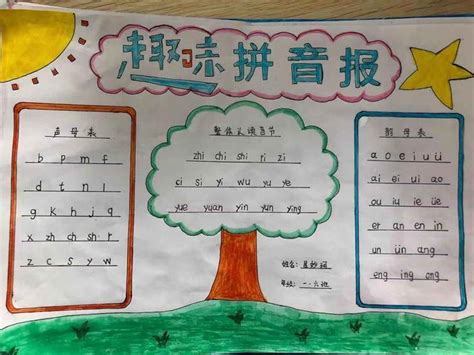 趣味拼音报
声母表
b p m f
d t n l
g k h j q
x zh ch sh r
z c s y w
整体认读音节
zhi chi shi ri zi
ci si yi wu yu ye
yue yuan yin yun ying
姓名:
年级: 一.六班
韵母表
a o e i u ü
ai ei ui ao
ou iu ie üe
er an en in
un ün ang
eng ing ong